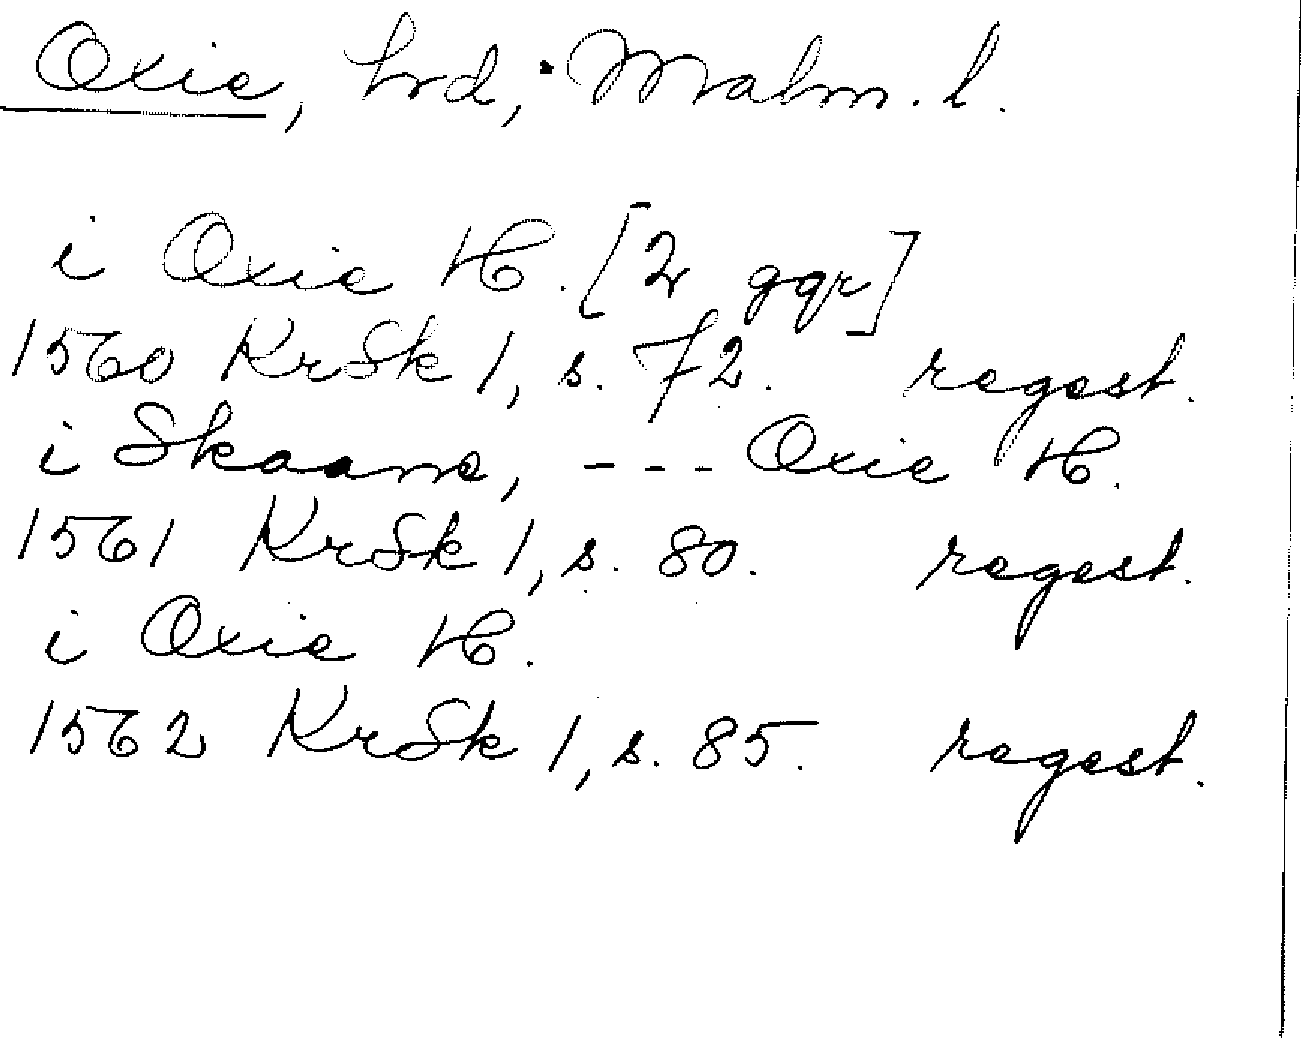 Oxie, hrd, Malm. l.
i Oxie H. [2 ggr]
1560 KrSk 1, s. 72. regest.
i Skaane, --- Oxie H.
1561 KrSk 1, s. 80. regest.
i Oxie H.
1562 KrSk 1, s. 85. regest.